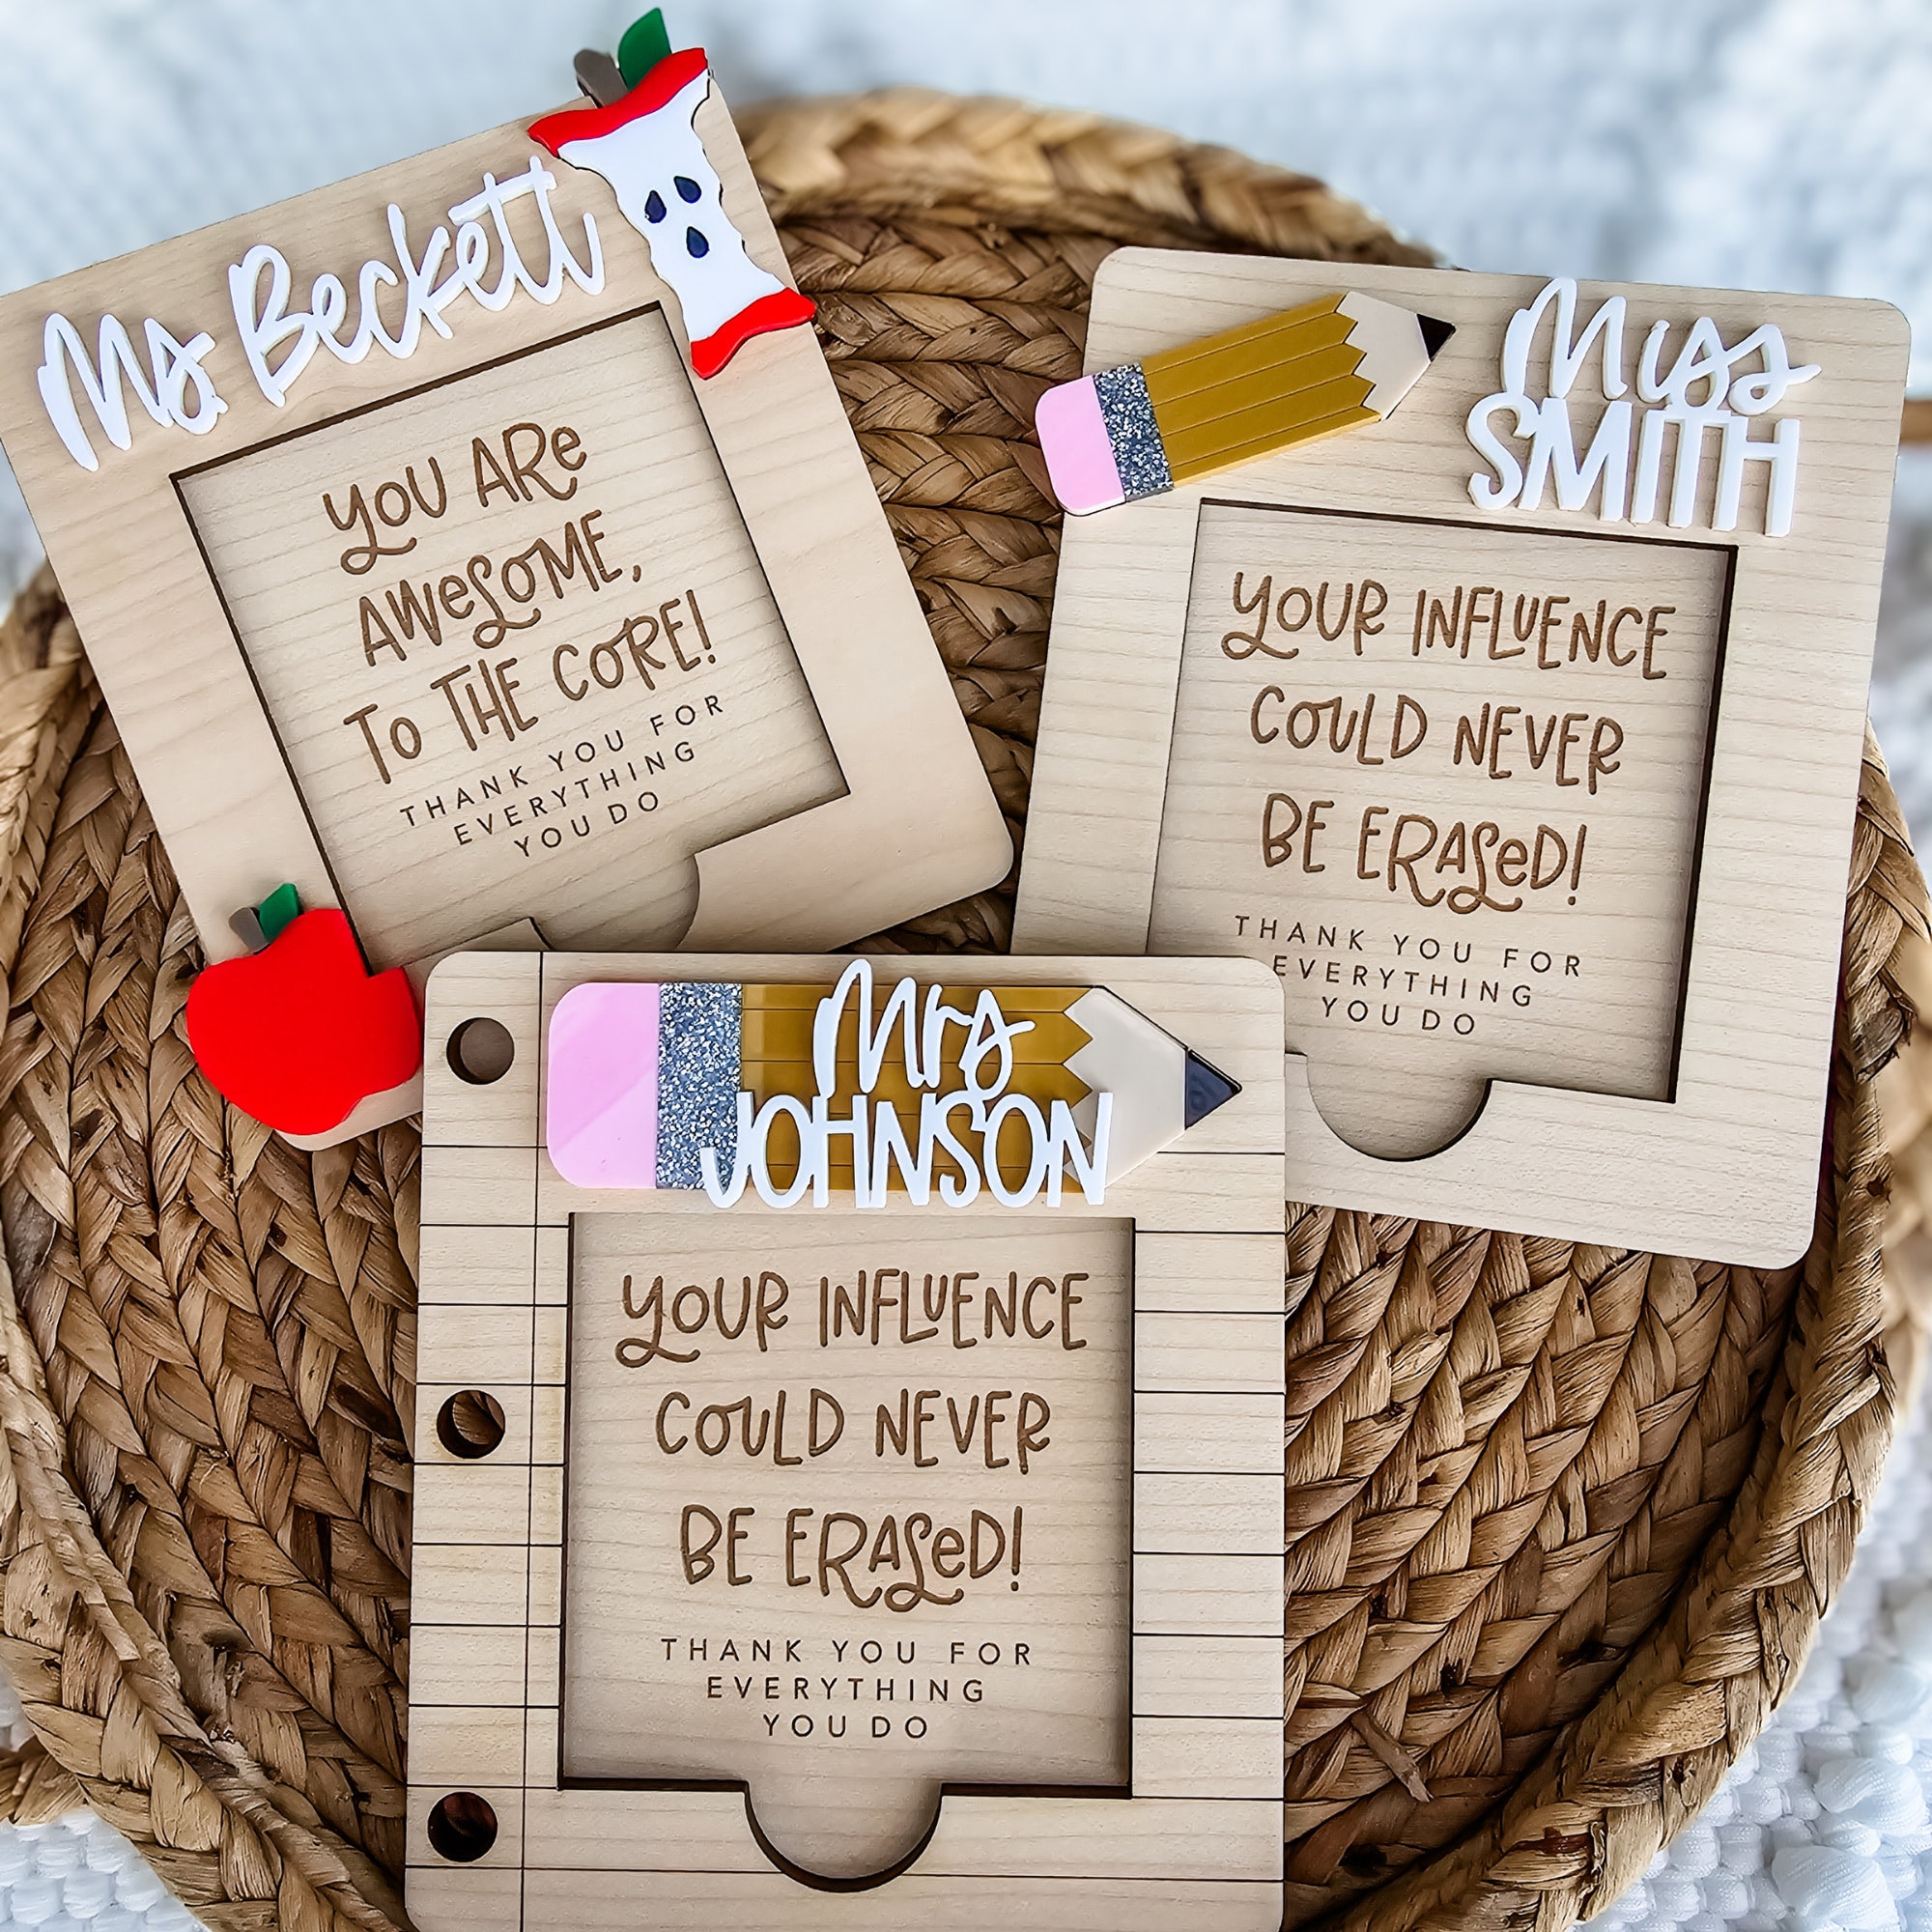 Ms. Beckett
YOU ARe
AWeSOME,
TO THE CORE!
THANK YOU FOR
EVERYTHING
YOU DO
Miss
SMITH
YOUR INFLUENCE
COULD NEVER
BE ERASeD!
THANK YOU FOR
EVERYTHING
YOU DO
Mrs
JOHNSON
YOUR INFLUENCE
COULD NEVER
BE ERASeD!
THANK YOU FOR
EVERYTHING
YOU DO